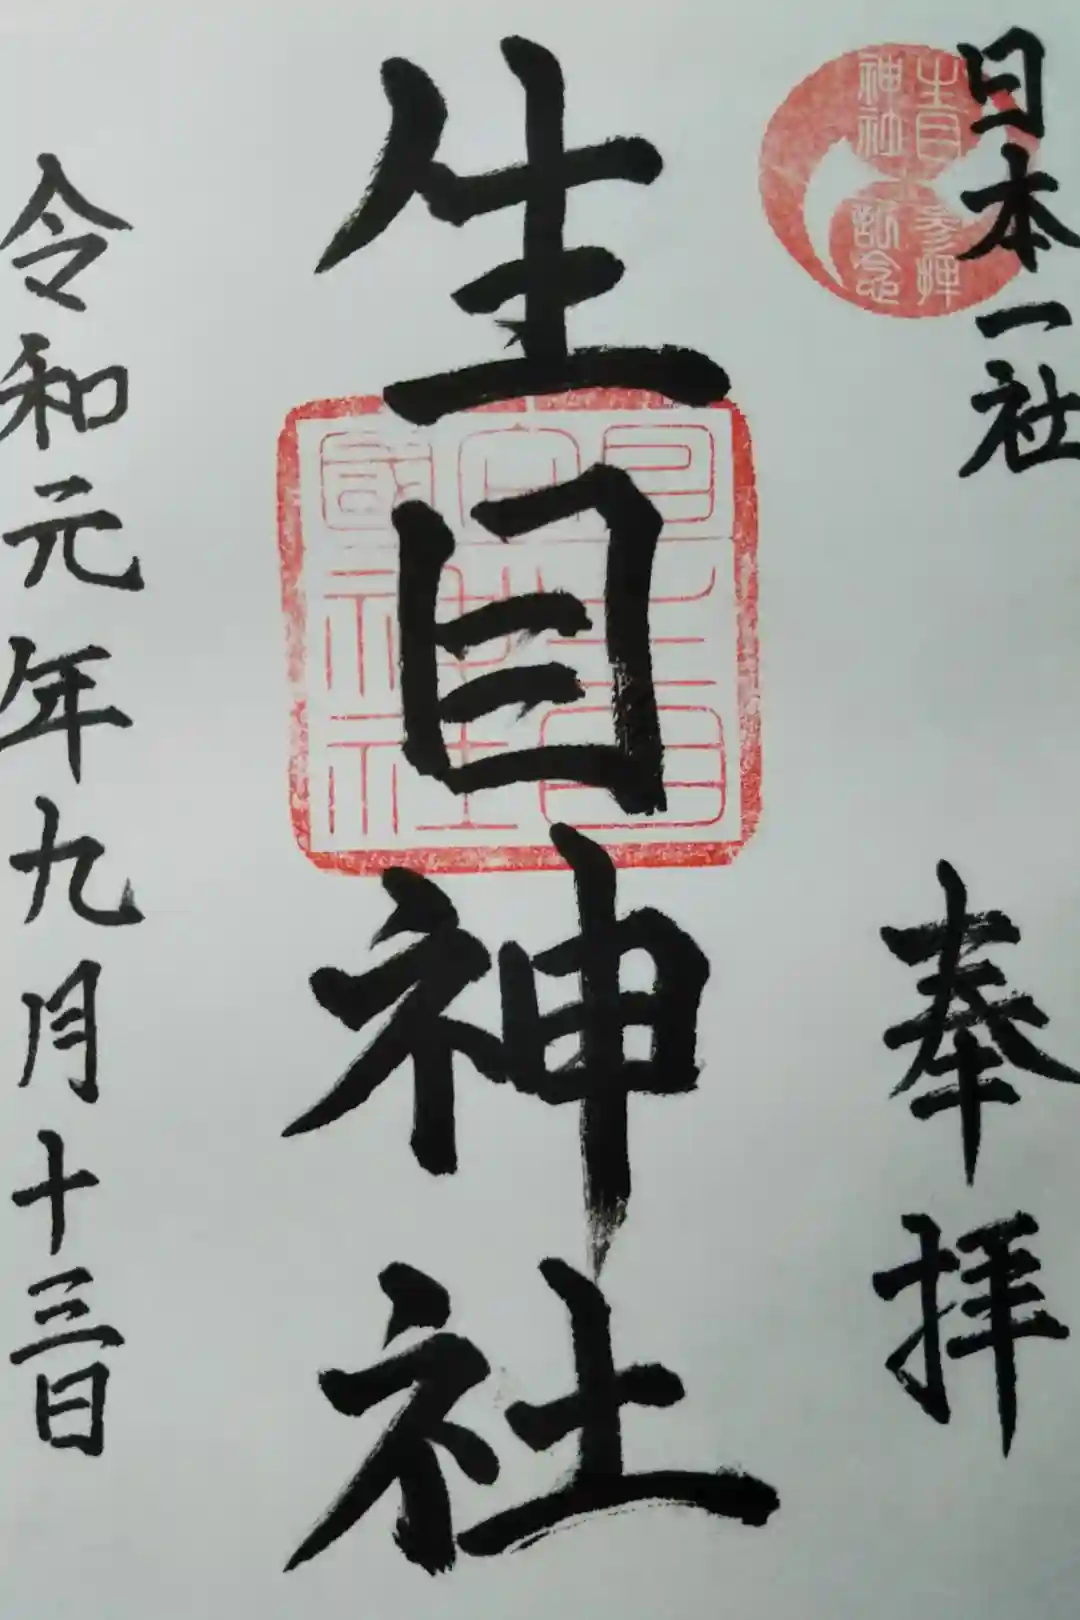 日本一社
奉拝
生目神社
参拝記念
生目神社
日向国
生目神社
令和元年九月十三日